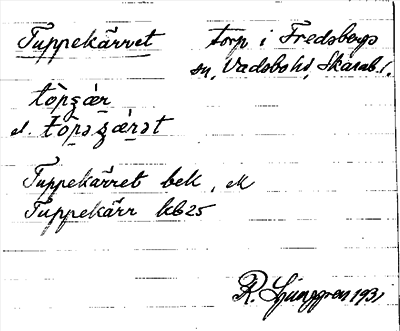 Tuppekärret torp i Fredsbergs
sn, Vadsbo hd, Skarab. l.
tòpʒǽr
el. tòpəʒǽrət
Tuppekärret bek, ek
Tuppekärr kb 25
R. Ljunggren 1931